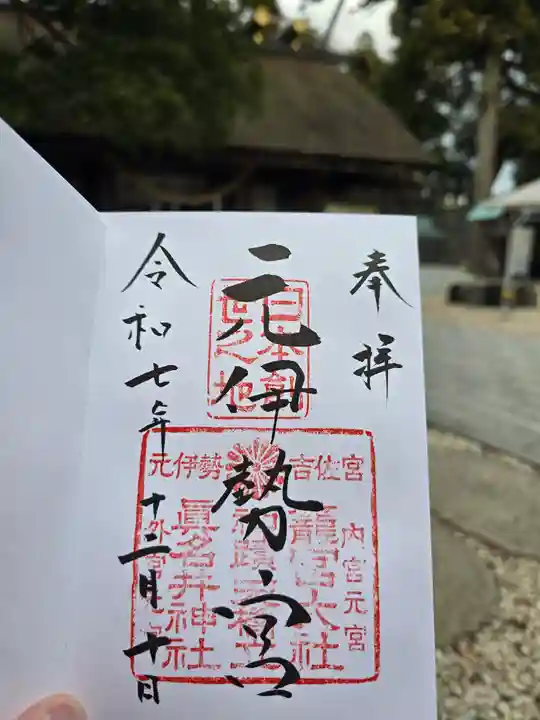 奉拝
元伊勢宮
令和七年十二月十日
日本創
世之地
吉佐宮
元伊勢
内宮元宮
籠宮大社
眞名井神社